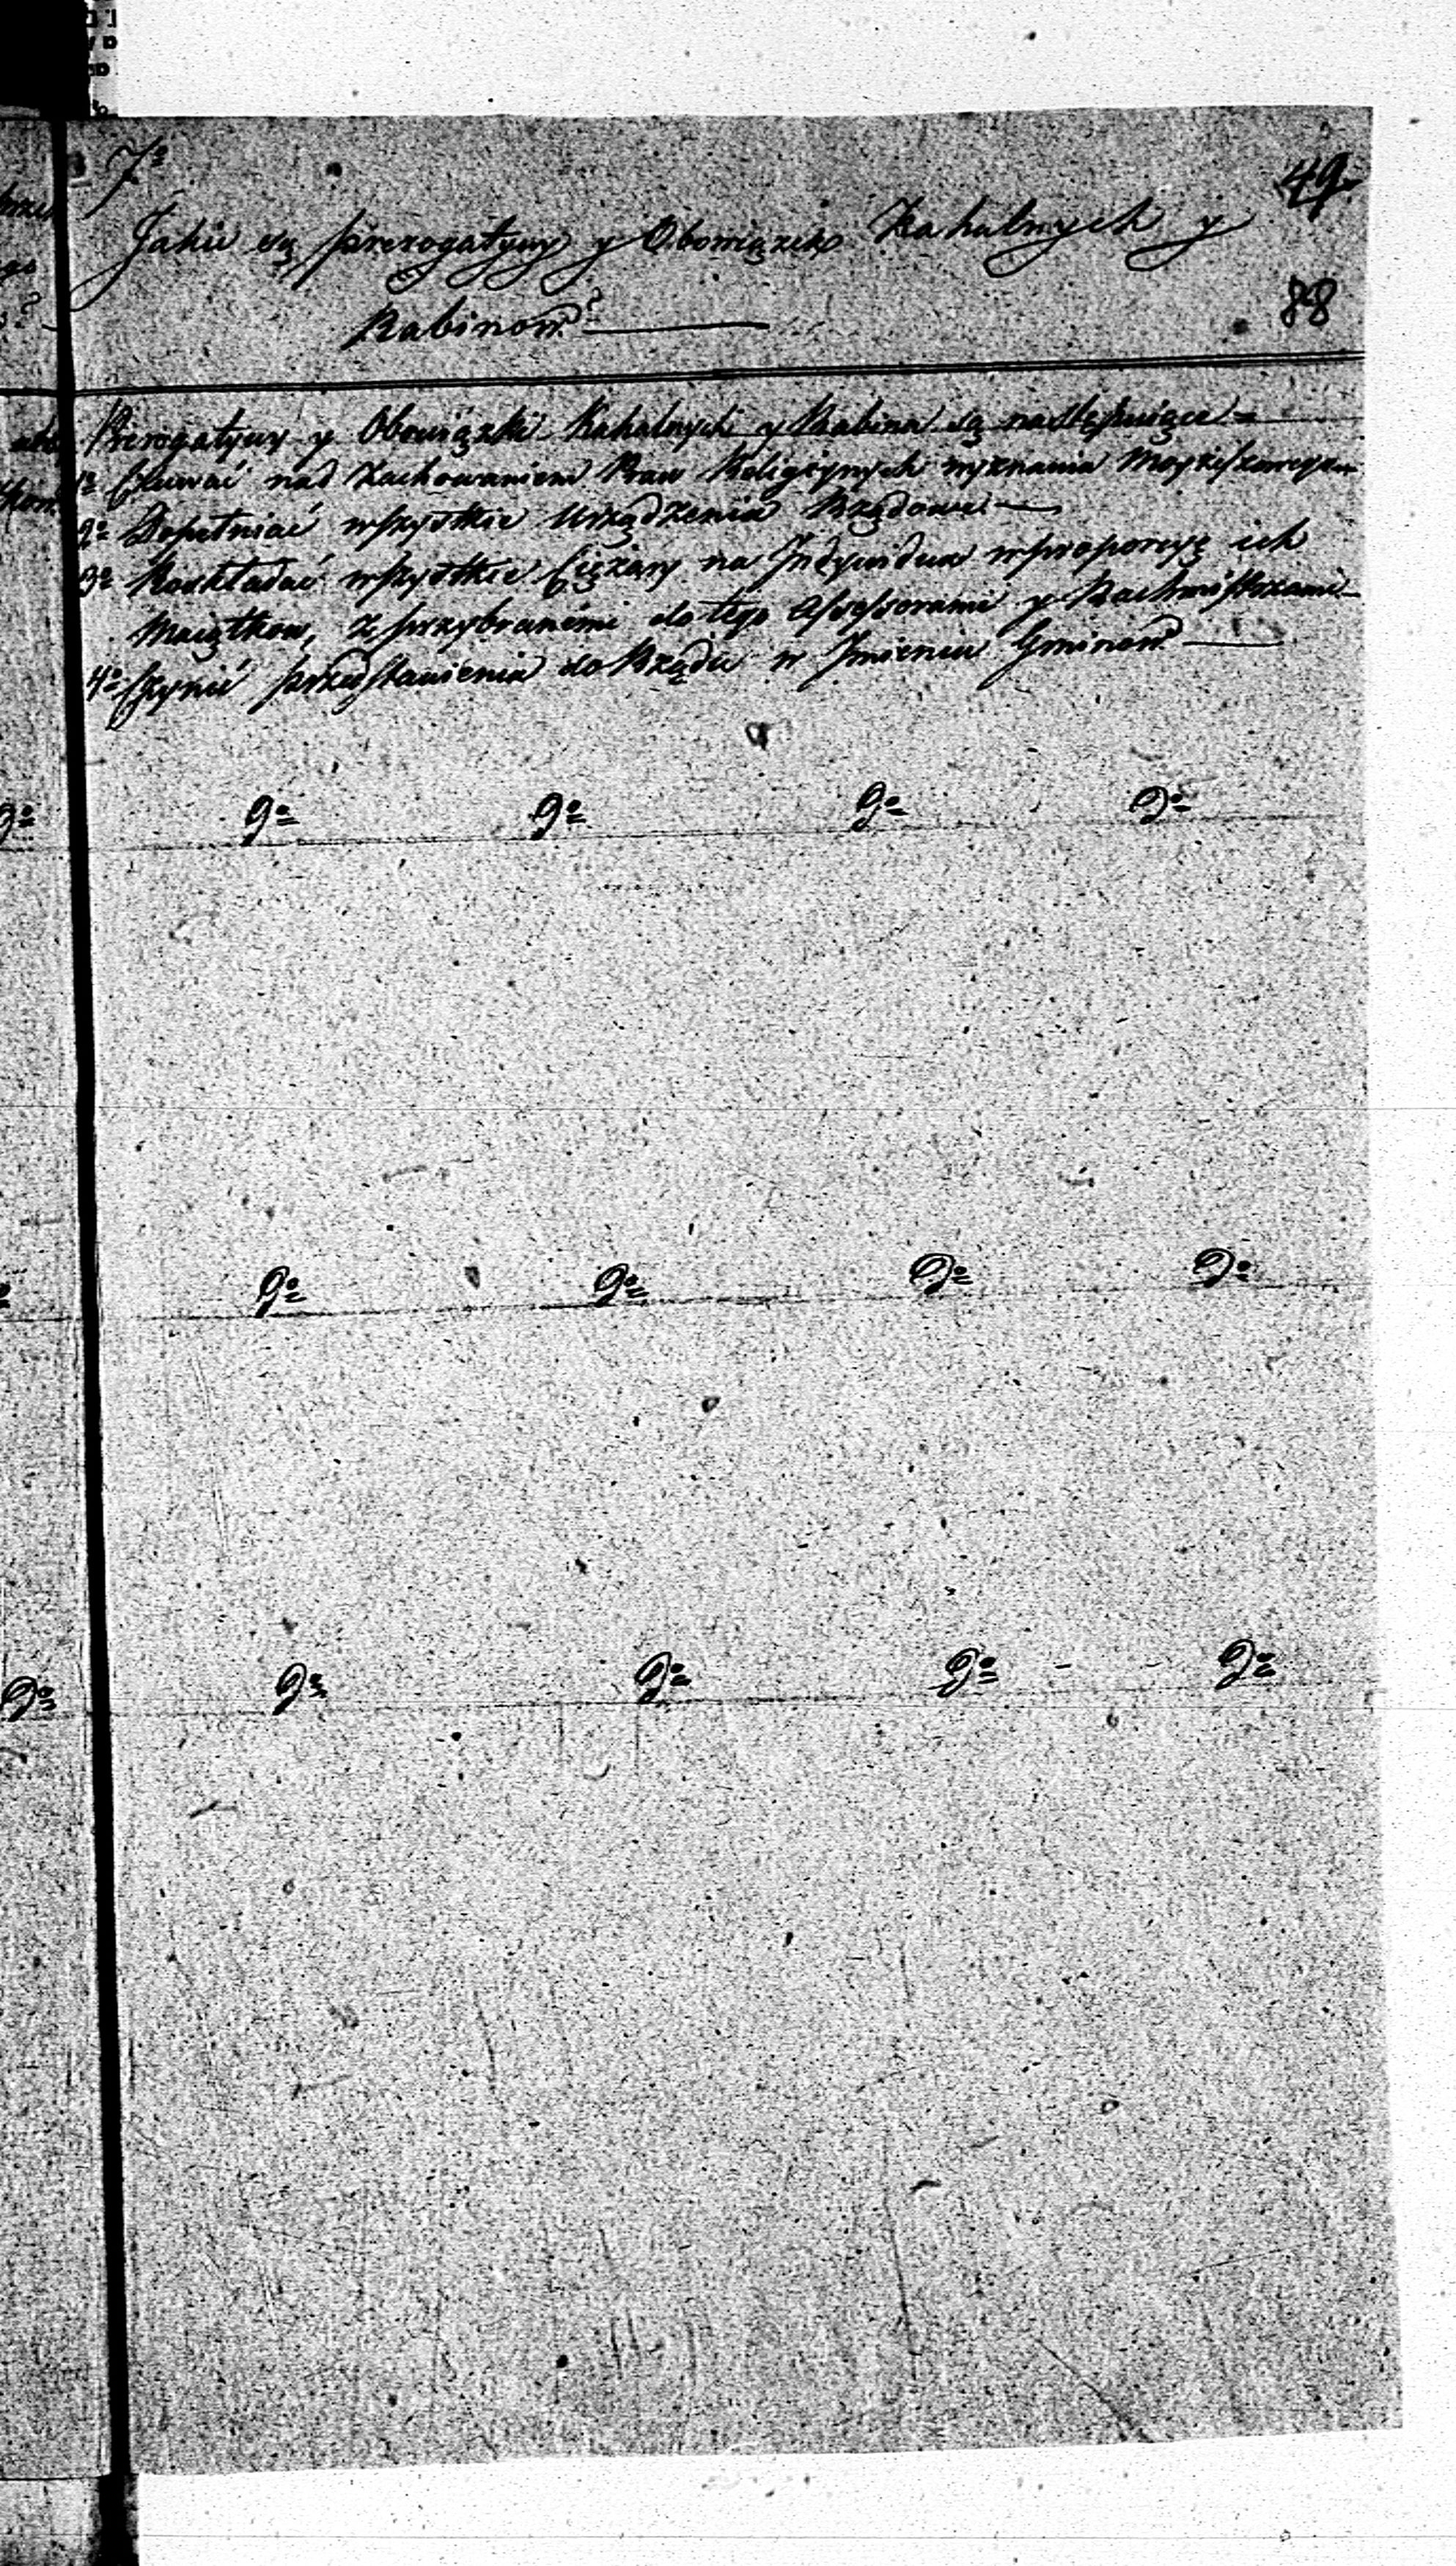 7º
49.
Jakie są prerogatywy y Obowiązek Kahalnych y
88
Rabinow?
Prerogatywy y Obowiązki Kahalnych y Rabina są następuiące =
1º Czuwać nad zachowaniem Praw Religiynych wyznania Moyżeszowego
2º Dopełniać wszystkie Urządzenia Rządowe
3º Rozkładać wszystkie Ciężary na Indywidua w proporcyę ich
Maiątkow, z przybranémi do tego Assessorami y Rachmistrzami
4º Czynić przedstawienia do Rządu w Jmieniu Gminow
dº dº dº dº
dº dº dº dº
dº dº dº dº